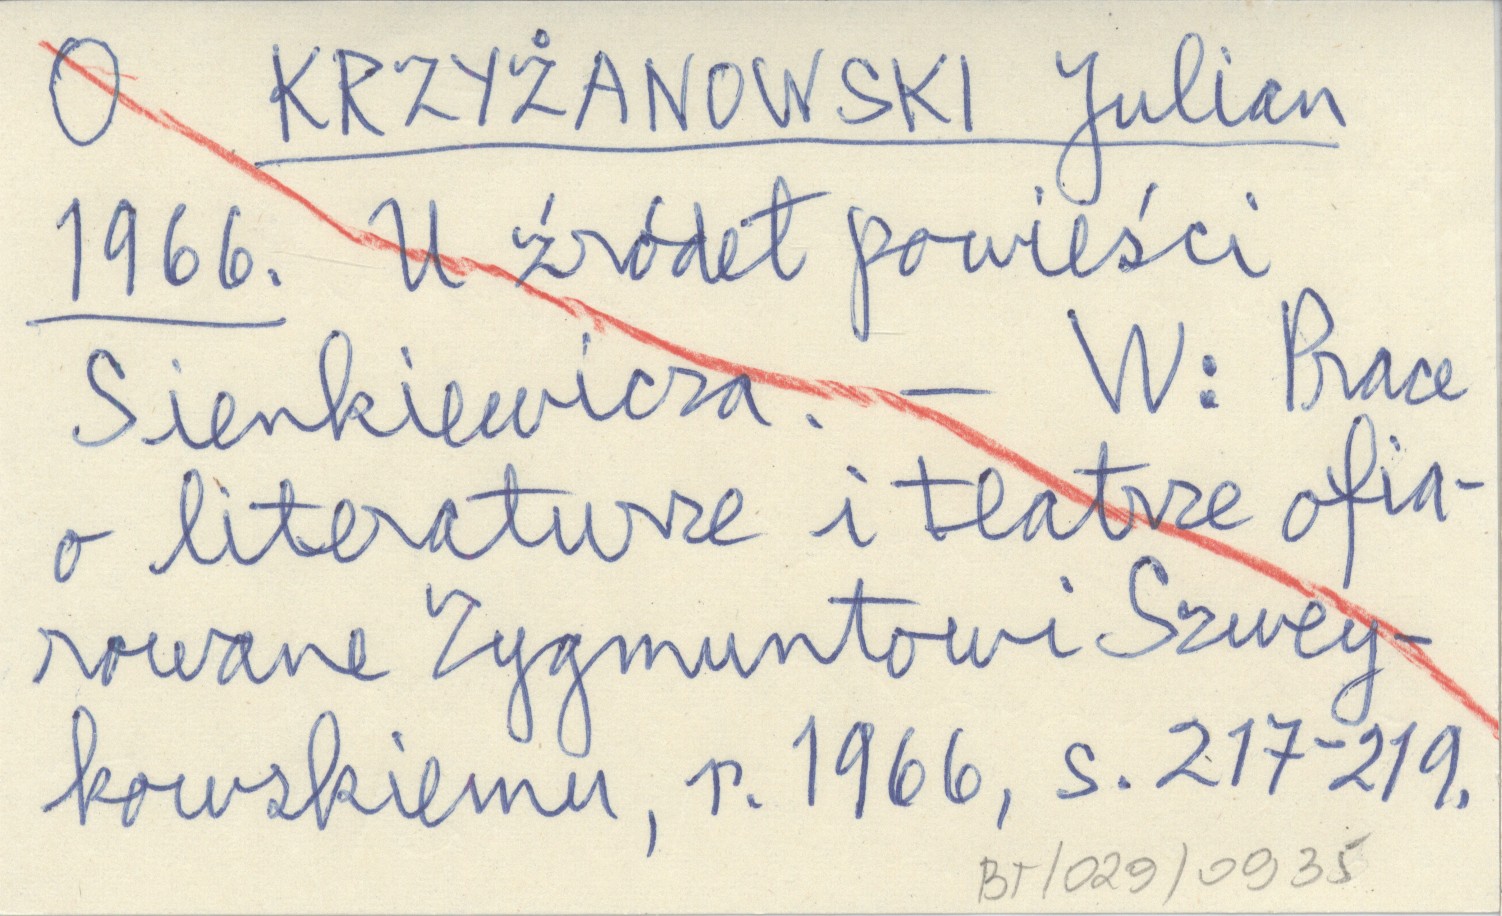 O KRZYŻANOWSKI Julian
1966. U źródeł powieści
Sienkiewicza. — W: Prace
o literaturze i teatrze ofia-
rowane Zygmuntowi Szwey-
kowskiemu, r. 1966, s. 217-219.
BT/029/0935